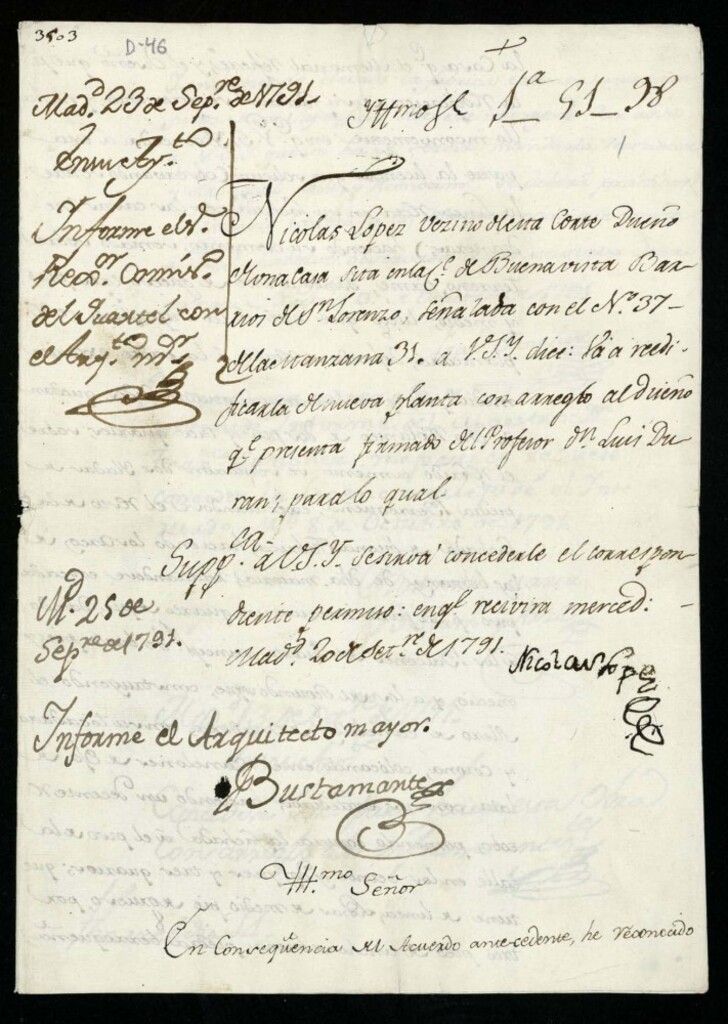 3503
D-46
Mad.d 23 de Sep.re de 1791.
En su Ay.to
Informe el S.r
Reg.or Comis.o
del Quartel con
el Arq.to m.or
Yllmo Sr
1a 51_ 98
Nicolas Lopez vezino de esta Corte Dueño
de una casa sita en la C.e de Buenavista Bar-
rios de Sn Lorenzo, señalada con el N.o 37-
de la manzana 31. a V.S.Y. dice: Va a reedi-
ficarla de nueva planta con arreglo al diseño
q.e presenta firmado del Profesor dn Luis Du
ran; para lo qual
Supp.ca a V.S.Y. se sirva concederle el correspon
diente permiso: en q.e recivira merced: -
Mad.d 20 de Set.re de 1791.
Nicolas Lopez
M.d 25 de
Sep.re de 1791.
Informe el Arquitecto mayor.
Bustamante
Yll.mo Señor
En Conseqüencia del Acuerdo antecedente, he reconocido